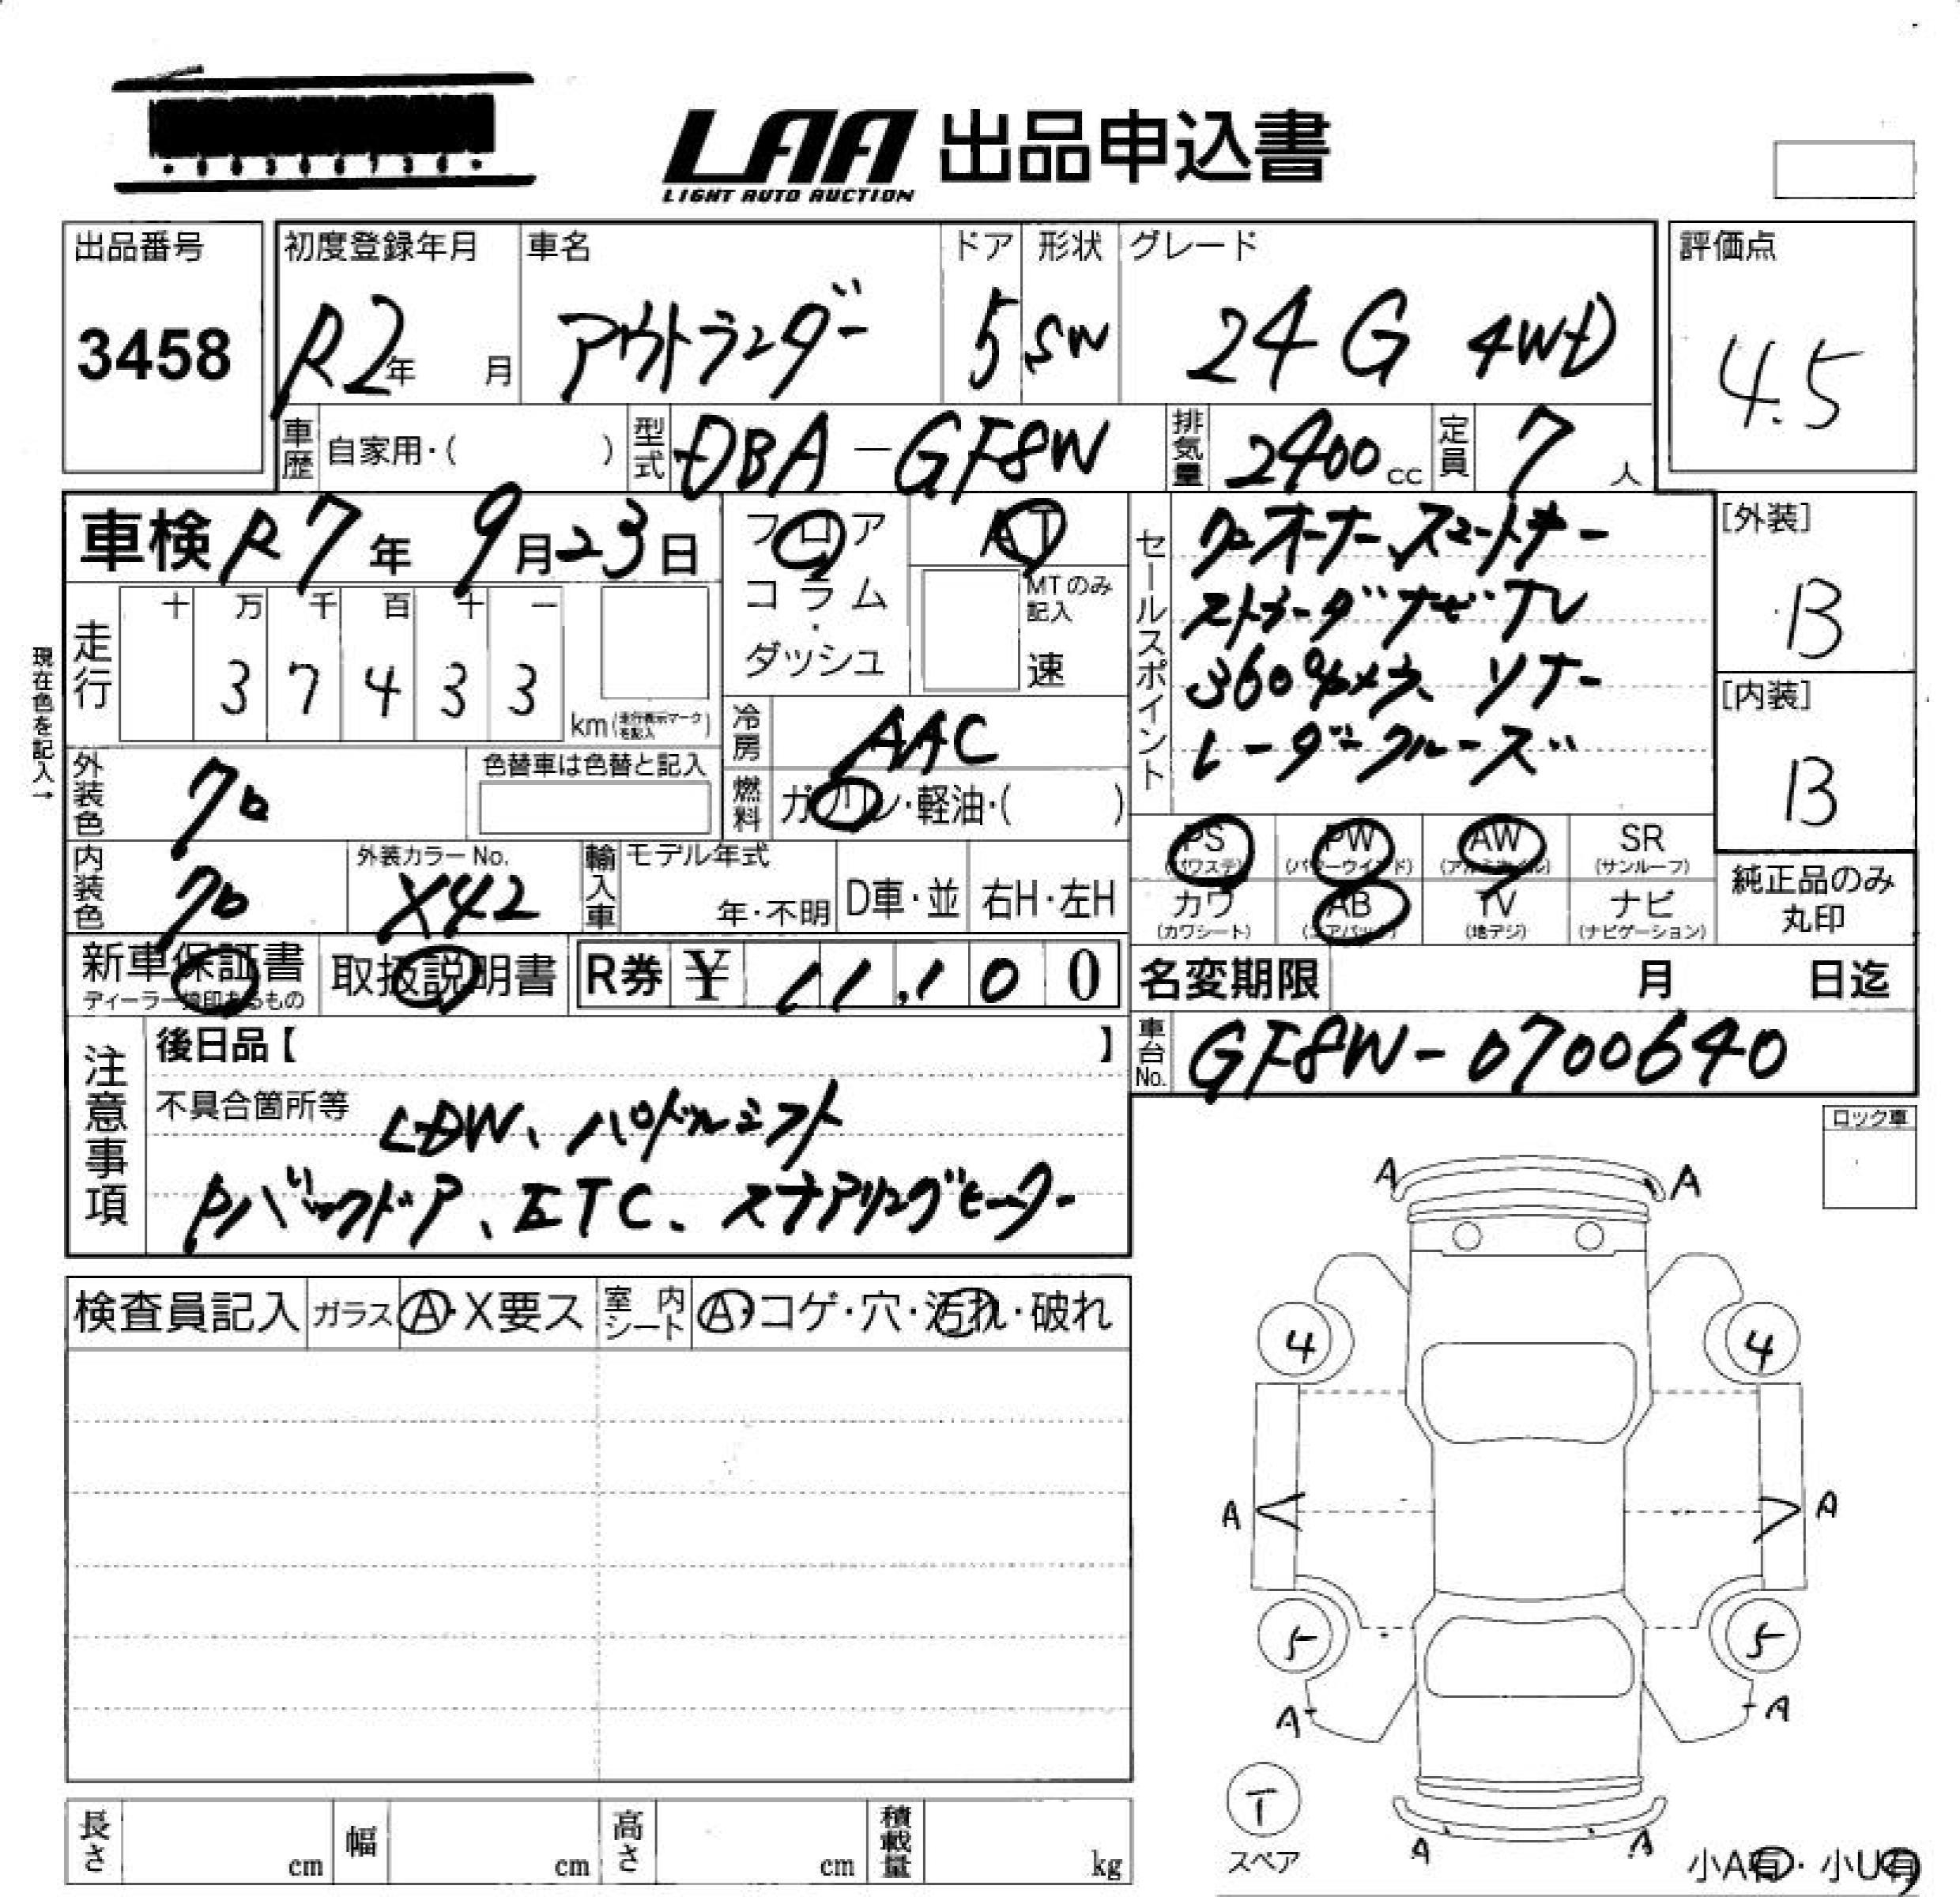 LAA 出品申込書
LIGHT AUTO AUCTION
出品番号 初度登録年月 車名 ドア 形状 グレード 評価点
3458 R2年 月 アウトランダー 5 SW 24G 4WD 4.5
車歴 自家用・( ) 型式 DBA-GF8W 排気量 2400cc 定員 7人
車検 R7年 9月23日 フロア AT セールスポイント ワンオーナー、スマートキー [外装]
コラム・ MTのみ記入 ストラーダナビ・TV B
ダッシュ 速 360°カメラ、ソナー [内装]
走行 十 万 千 百 十 一 レーダークルーズ B
3 7 4 3 3 km(走行表示マークを記入)
冷房 AAC
現在色を記入→
外装色 クロ 色替車は色替と記入 燃料 ガソリン・軽油・( )
PS (パワステ) PW (パワーウインド) AW (アルミホイル) SR (サンルーフ)
内装色 クロ 外装カラーNo. X42 輸入車 モデル年式 年・不明 D車・並 右H・左H
カワ (カワシート) AB (エアバッグ) TV (地デジ) ナビ (ナビゲーション) 純正品のみ丸印
新車保証書 ディーラー捺印あるもの 取扱説明書 R券 ¥ 11,100 名変期限 月 日迄
注意事項 後日品【 】 車台No. GF8W-0700640
不具合箇所等 LDW、パドルシフト
Pバックドア、ETC、ステアリングヒーター
ロック車
検査員記入 ガラス A・X要ス 室内シート A・コゲ・穴・汚れ・破れ
A A
4 4
A A
5 5
A A
T
スペア
A A
小A有・小U有
長さ cm 幅 cm 高さ cm 積載量 kg